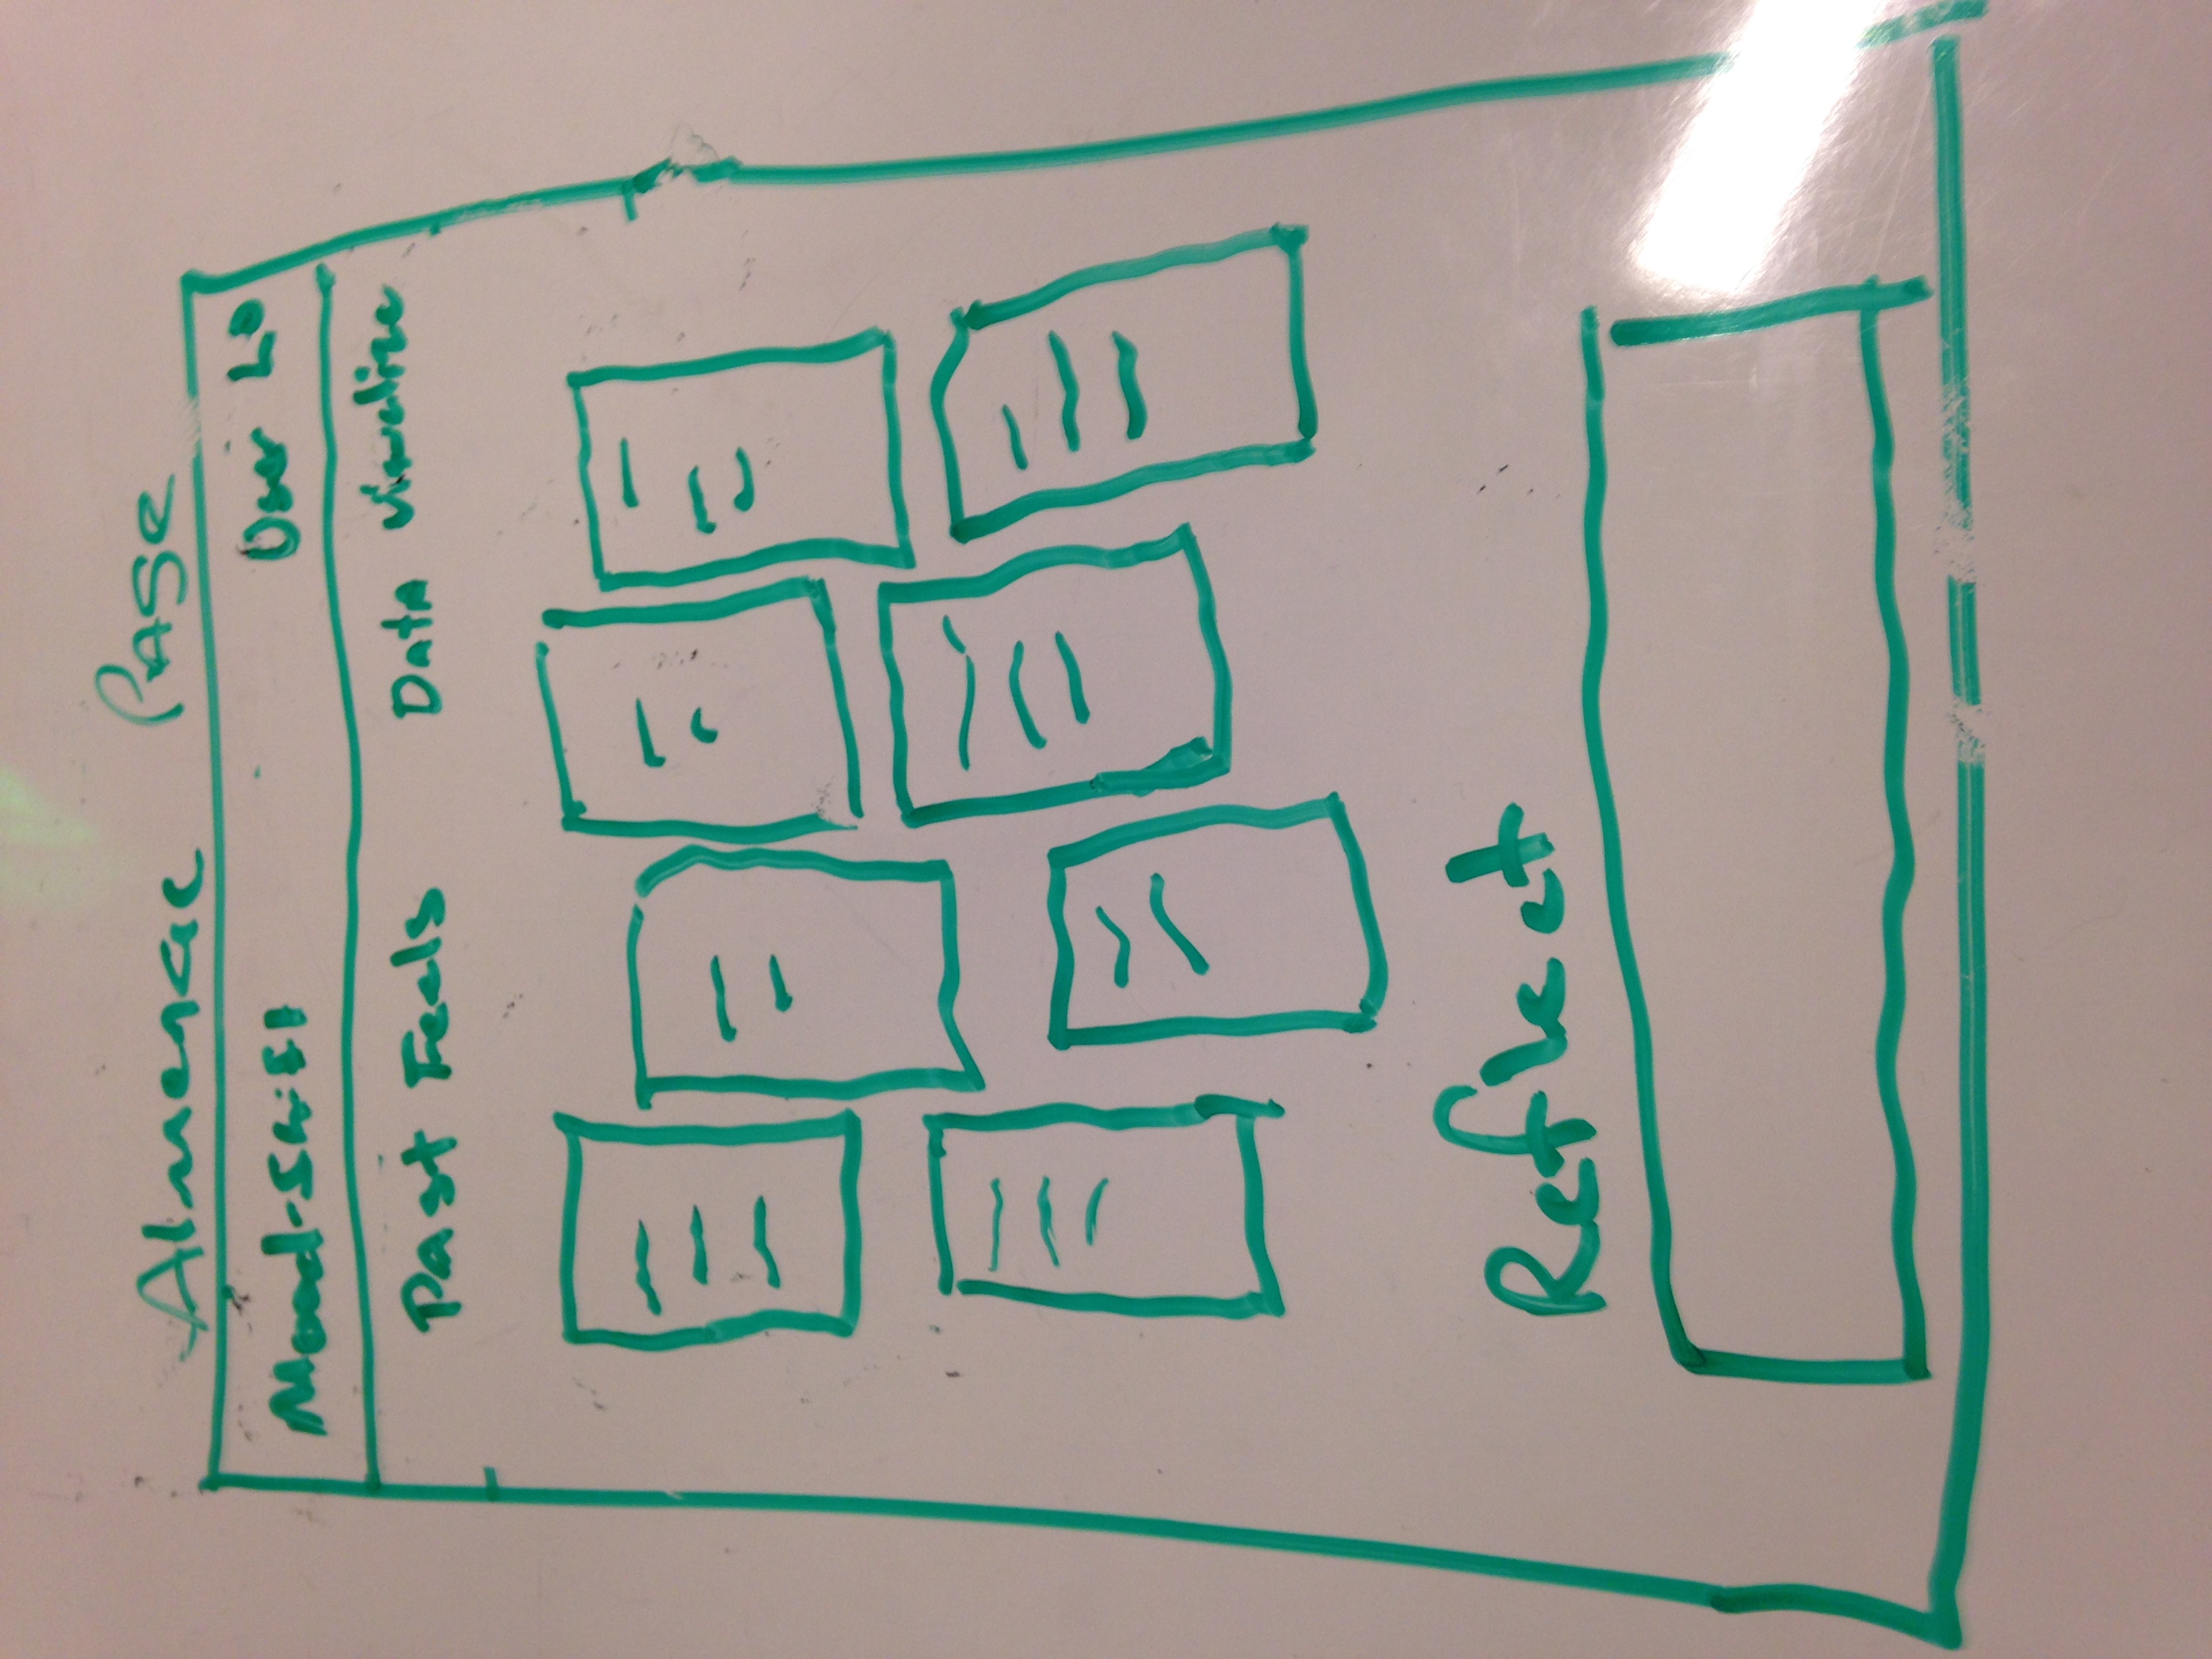 Almenac Page
Mood-Shift User LO
Past Feels Data Visualize
Reflect